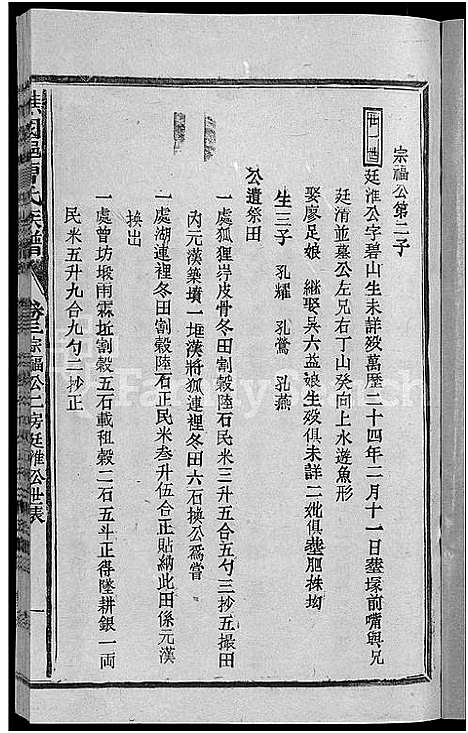 宗福公第二子
廿一世 廷淮公字碧山生未詳歿萬歷二十四年二月十一日塟塚前嘴與兄
廷清並墓公左兄右丁山癸向上水遊魚形
娶廖足娘 継娶吳六益娘生歿俱未詳二妣俱塟胆株坳
生三子 孔耀 孔鶯 孔燕
公遺祭田
一處狐狸岸皮骨冬田割穀陸石民米三升五合五勺三抄五撮田
內元漢築墳一堆漢將狐連裡冬田六石換公爲嘗
一處湖連裡冬田割穀陸石正民米叁升伍合正貼納此田係元漢
換出
一處曾坊塅雨霖坵割穀五石載租穀二石五斗正得墜耕銀一両
民米五升九合九勺二抄正
曹氏族譜 卷三 宗福公二房廷淮公世表 一
FamilySearch